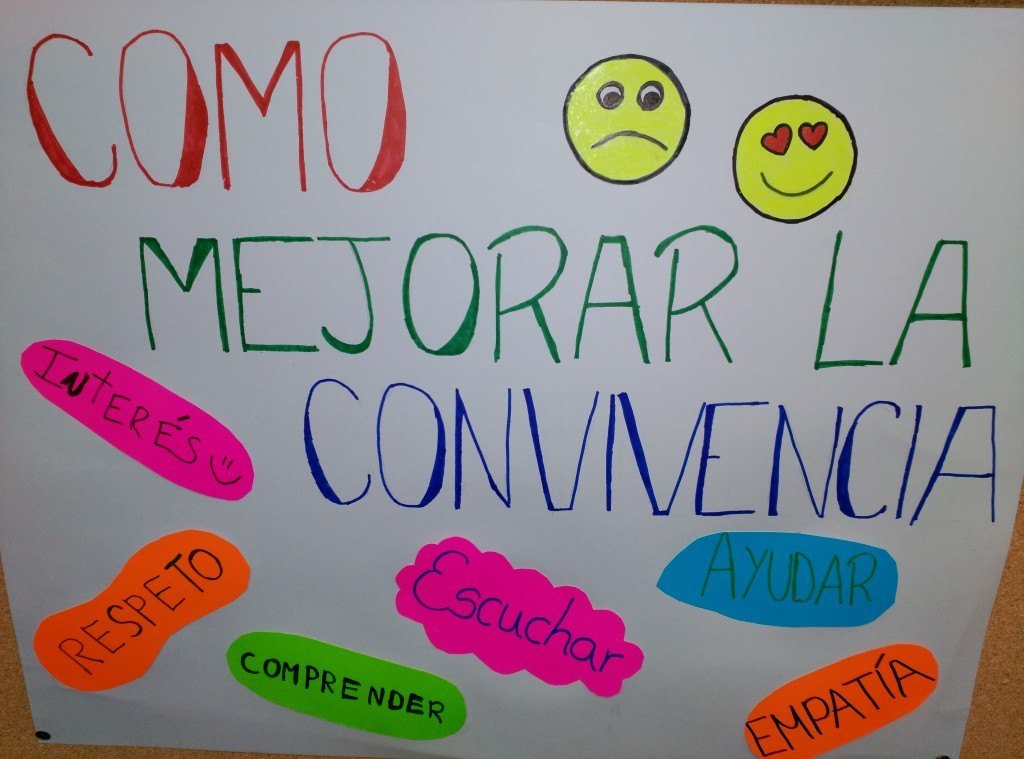 COMO
MEJORAR LA
CONVIVENCIA
INtERÉS
RESPETO
COMPRENDER
Escuchar
AYUDAR
EMPATÍA